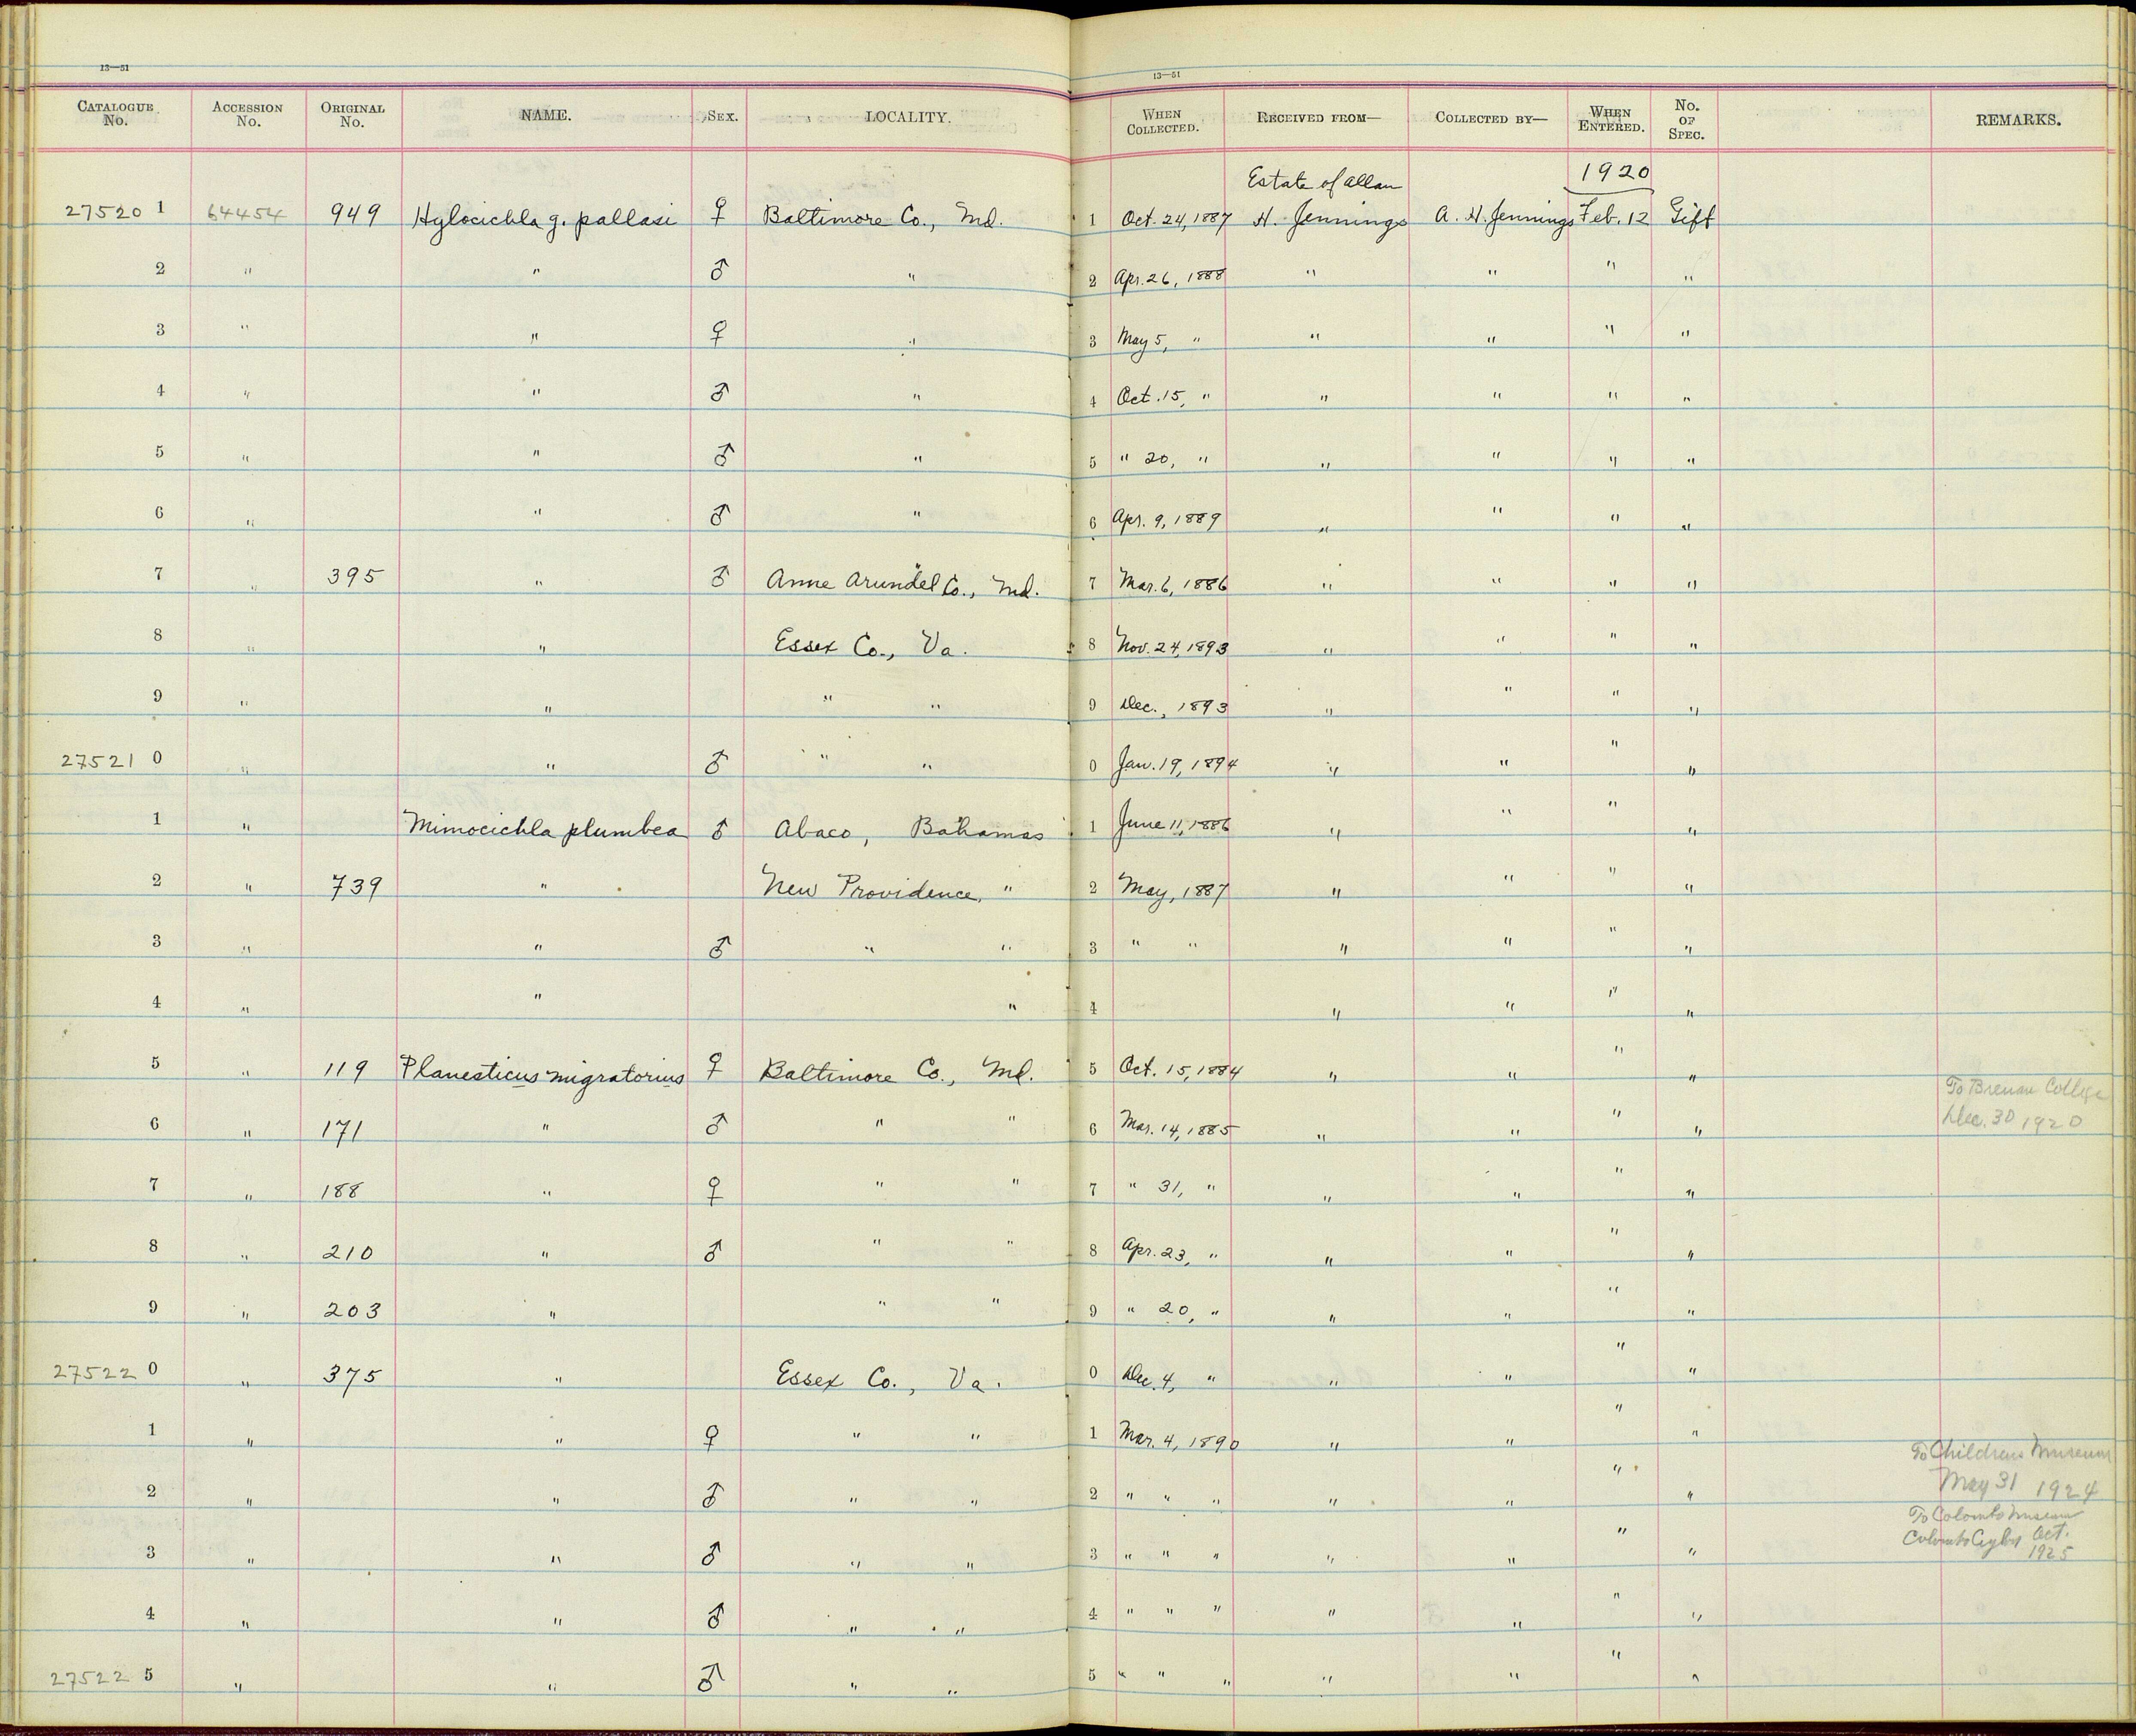 13—51
13—51
CATALOGUE No. ACCESSION No. ORIGINAL No. NAME. SEX. LOCALITY. WHEN COLLECTED. RECEIVED FROM— COLLECTED BY— WHEN ENTERED. No. OF SPEC. REMARKS.
Estate of Allan 1920
27520 1 64454 949 Hylocichla g. pallasi ♀ Baltimore Co., Md. 1 Oct. 24, 1887 H. Jennings A. H. Jennings Feb. 12 Gift
2 " " ♂ " 2 Apr. 26, 1888 " " " "
3 " " ♀ " 3 May 5, " " " " "
4 " " ♂ " 4 Oct. 15, " " " " "
5 " " ♂ " 5 " 20, " " " " "
6 " " ♂ " 6 Apr. 9, 1889 " " " "
7 " 395 " ♂ Anne Arundel Co., Md. 7 Mar. 6, 1886 " " " "
8 " " Essex Co., Va. 8 Nov. 24, 1893 " " " "
9 " " " " 9 Dec., 1893 " " " "
27521 0 " " ♂ " " 0 Jan. 19, 1894 " " " "
1 " Mimocichla plumbea ♂ Abaco, Bahamas 1 June 11, 1886 " " " "
2 " 739 " New Providence, " 2 May, 1887 " " " "
3 " " ♂ " " 3 " " " " " "
4 " " " 4 " " " "
5 " 119 Planesticus migratorius ♀ Baltimore Co., Md. 5 Oct. 15, 1884 " " " "
To Brenau College
6 " 171 " ♂ " " 6 Mar. 14, 1885 " " " " Dec. 30 1920
7 " 188 " ♀ " " 7 " 31, " " " " "
8 " 210 " ♂ " " 8 Apr. 23, " " " " "
9 " 203 " " " 9 " 20, " " " " "
27522 0 " 375 " Essex Co., Va. 0 Dec. 4, " " " " "
1 " " ♀ " " 1 Mar. 4, 1890 " " " "
To Childrens Museum
2 " " ♂ " " 2 " " " " " " " May 31 1924
To Colombo Museum
3 " " ♂ " " 3 " " " " " " " Colombo Ceylon Oct.
1925
4 " " ♂ " " 4 " " " " " " "
27522 5 " " ♂ " " 5 " " " " " " "